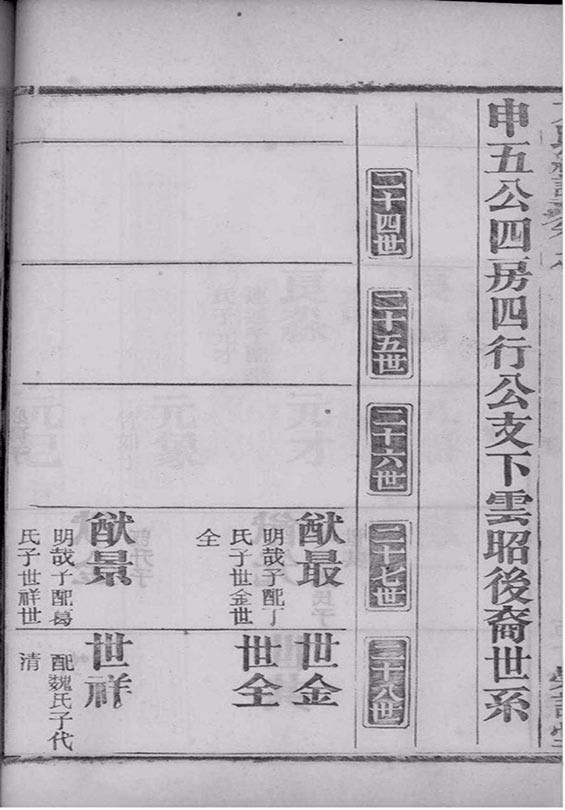 申五公四房四行公支下雲昭後裔世系
二十四世
二十五世
二十六世
二十七世
二十八世
猷最
明哉子配丁
氏子世金世
全
猷景
明哉子配葛
氏子世祥世
清
世金
世全
世祥
配魏氏子代